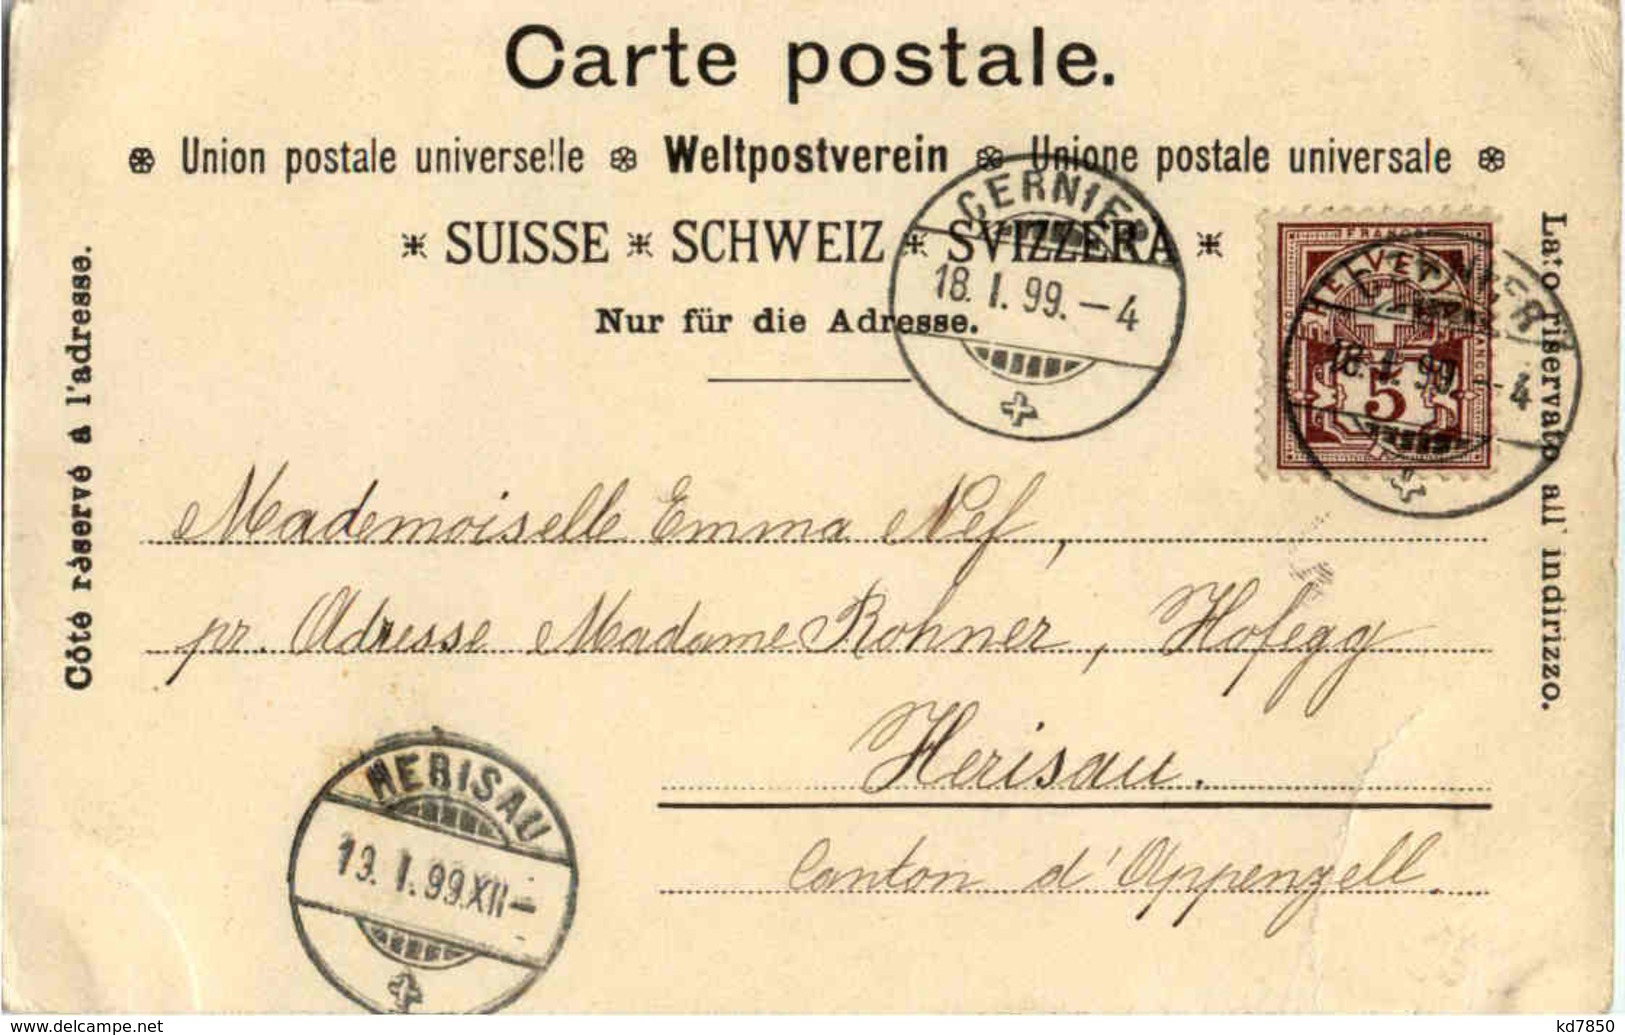 Carte postale.
Union postale universelle Weltpostverein Unione postale universale
SUISSE SCHWEIZ SVIZZERA
Nur für die Adresse.
Côté réservé à l'adresse.
Lato riservato all' indirizzo.
CERNIER
18. I. 99. - 4
FRANCO
HELVETIA
5
CERNIER
18. I. 99. - 4
Mademoiselle Emma Nef,
pr. Adresse Madame Rohner, Hofegg
Herisau.
Canton d'Appenzell.
HERISAU
19. I. 99. XII -
www.delcampe.net
kd7850